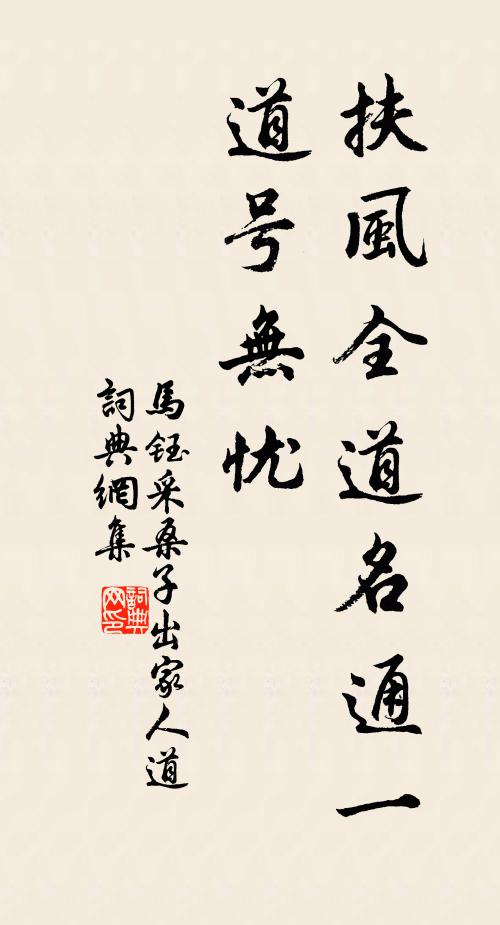 扶風全道名通一
道号無忧
馬鈺采桑子出家人道
詞典網集
詞典网印